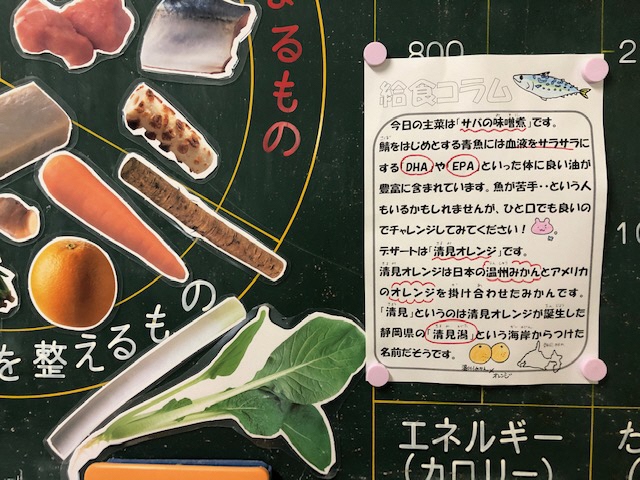 まるもの
を整えるもの
800
給食コラム
今日の主菜は「サバの味噌煮」です。
鯖をはじめとする青魚には血液をサラサラに
する DHA や EPA といった体に良い油が
豊富に含まれています。魚が苦手・・という人
もいるかもしれませんが、ひと口でも良いの
でチャレンジしてみてください！
デザートは「清見オレンジ」です。
清見オレンジは日本の温州みかんとアメリカ
のオレンジを掛け合わせたみかんです。
「清見」というのは清見オレンジが誕生した
静岡県の「清見潟」という海岸からつけた
名前だそうです。
オレンジ
エネルギー
(カロリー)
た